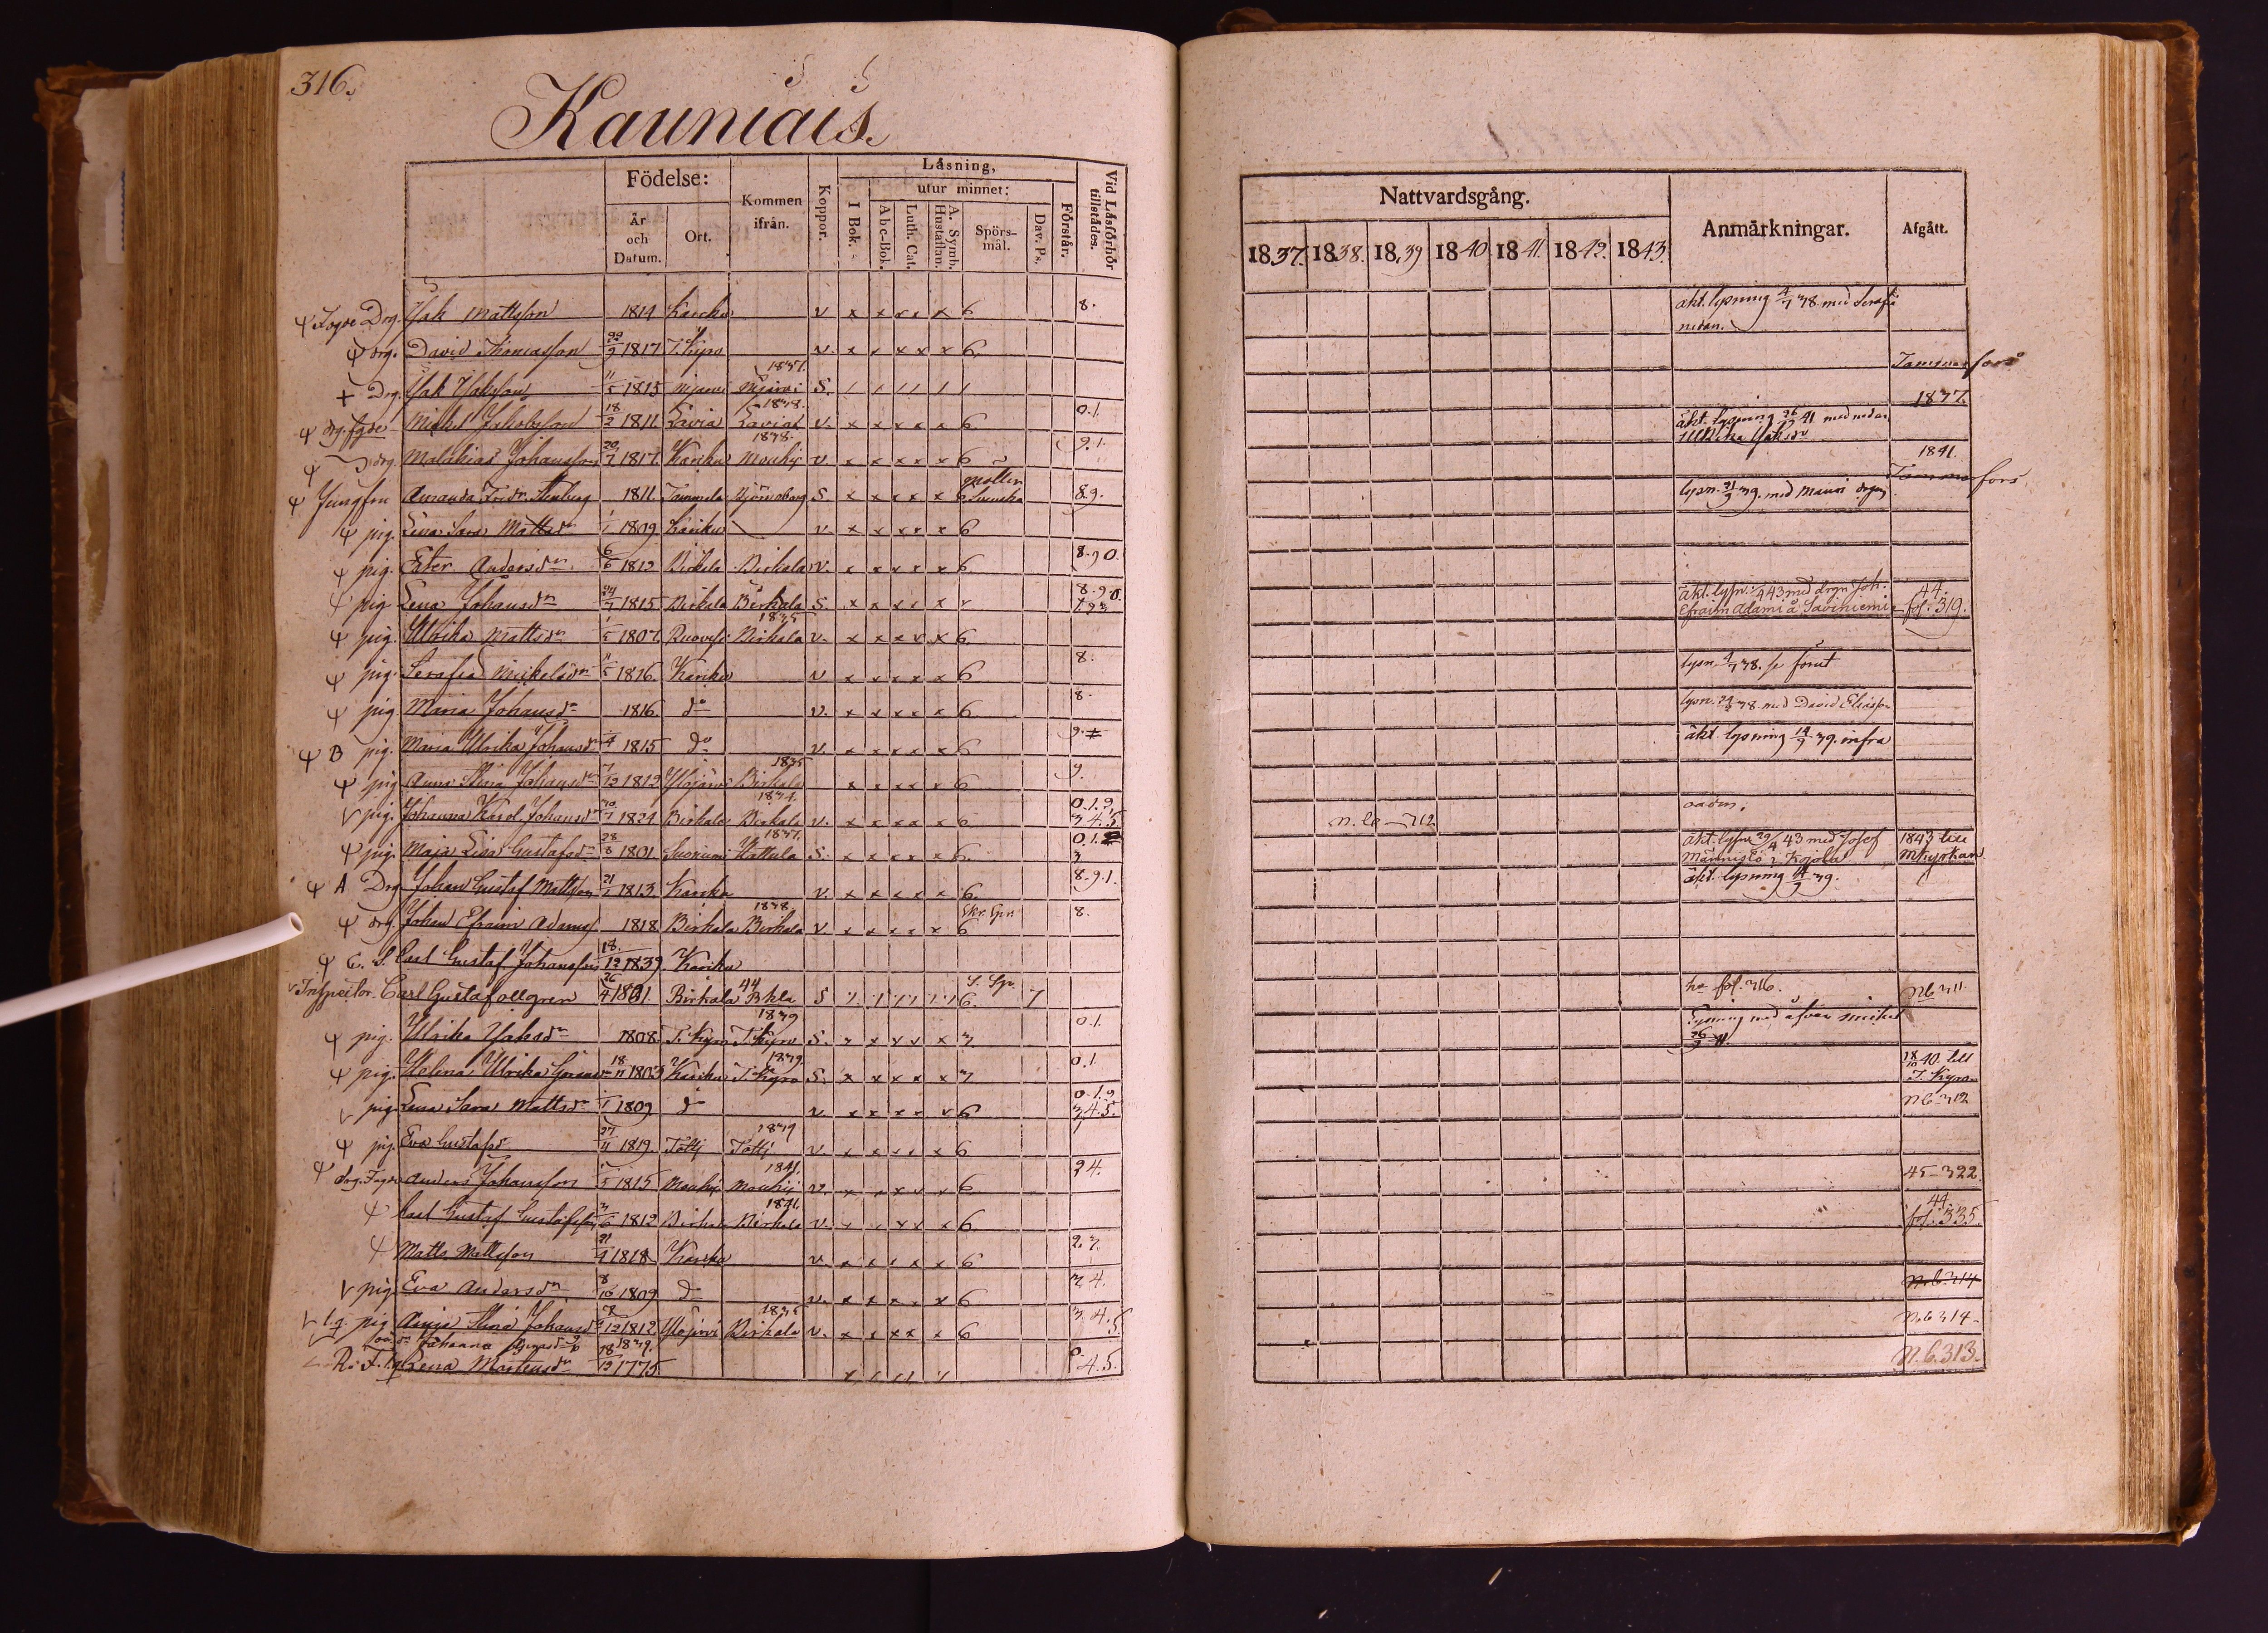 316.
Kauniais.
Födelse:
År och Datum.
Ort.
Kommen ifrån.
Koppor.
Läsning,
utur minnet:
I Bok.
Abc-Bok.
Luth. Cat.
A. Symb. Hustaflan.
Spörsmål.
Dav. Ps.
Förstår.
Vid Läsförhör tillstädes.
Drg. Isak Mattsson 1814 v x x x x x 6 8.
drg. David Thomasson 22/9 1817 T. Kyro v. x x x x x 6.
+ Drg. Isak Isaksson 11/5 1815 1837. S. / / / / / /
drg. fgde Mickel Jakobsson 18/2 1811 Lavia Lavia 1838. v. x x x x x 6 0.1.
drg. Malakias Johansson 20/7 1817. Karcku Mouhij 1838. v x x x x x 6 9.1.
Jungfru Amanda Fredr. Stenberg 1811. Tammela Björneborg S. x x x x x 6 Svenska 8.9.
pig. Lena Sara Mattsdr 1/1 1809 Karcku v. x x x x x 6
pig. Ester Andersdr 6/6 1812 Birkala Birkala v. x x x x x 6 8.90.
pig Lena Johansdr 24/7 1815 Birkala Birkala S. x x x x x 8.9.0.
pig. Ulrika Mattsdr 1/5 1807. Ruovesi Birkala 1835 v. x x x x x 6
pig. Serafia Mickelsdr 11/5 1816. Karcku v x x x x x 6 8.
pig Maria Johansdr 1816. do v. x x x x x 6 8.
B pig. Maria Ulrika Johansdr 1815 do v. x x x x x 6 9.
pig Anna Stina Johansdr 7/12 1812 Ylöjärvi Birkala 1835 x x x x x 6 9.
pig. Johanna Karol. Johansdr 1824 Birkala Birkala 1834. v. x x x x x 6 0.1.2 3.4.5.
pig. Maja Lisa Gustafsdr 28/8 1801 Suoniemi Hattula 1837. S. x x x x x 6. 0.1.2 3
A Drg Johan Gustaf Mattsson 21/1 1813. Karcku v. x x x x x 6. 8.9.1.
drg. Johan Efraim Adamss. 1818 Birkala Birkala 1838. v x x x x x 6 8.
C. S. Carl Gustaf Johansson 18/12 1839. Karcku
Inspector. Carl Gustaf Ollgren 26/4 1801. Birkala Bkla 44 S 6. 7
pig. Ulrika Isaksdr 1808. T. Kyro T. Kyro 1839 S. x x x x x 3. 0.1.
pig. Helena Ulrika Göransdr 18/11 1803 Karcku T. Kyro 1839. S. x x x x x 3 0.1.
pig Lena Sara Mattsdr 1/1 1809 do v x x x x v 6 0.1.2 3.4.5.
pig. Eva Gustafsdr 27/11 1819. Tottj Tottj 1839 v. x x x x x 6 1
drg. Fogde Anders Johansson 1/5 1815 Mouhij Mouhij 1841. v. x x x x x 6 24.
Carl Gustaf Gustafsson 3/6 1812 Birkala Birkala 1841. v. x x x x x 6
Matts Mattsson 21/4 1818 Karcku v x x x x x 6 2.3.
pig Eva Andersdr 8/10 1809 do v. x x x x x 6 3.4.
pig Anna Stina Johansdr 7/12 1812 Ylöjärvi Birkala 1835 v. x x x x x 6 3.4.5.
oä dr Johanna 1839.
Lena Mårtensdr 18/12 1775. 4.5.
Nattvardsgång.
Anmärkningar.
Afgått.
1837. 1838. 1839 1840. 1841. 1842. 1843.
äkt. lysning 4/7 38. med Serafia
nedan.
Tammerfors
1837.
äkt. lysning 26/9 41 med nedan
Ulrika Isaksdr
1841.
Tammerfors
lysn. 21/9 39. med Mauri drgn
äkt. lysn. 43 med drgn Joh.
Efraim Adami å Saviniemi
44.
fol. 319.
lysn. 4/7 38. se förut
lysn. 24/2 38. med David Eliasson
äkt. lysning 14/7 39. infra
oädm.
n. 6 312
äkt. lysn. 29/4 43 med Josef
Männistö i Kojola
1843 till
Mkyrkan
äkt. lysning 14/7 39.
fol. 316.
N6 311
Lysning med ofvan Mickel
26/9 41.
18/10 40. till
T. Kyro.
N6 312
45-322
44.
fol. 335.
N. 6 314
N. 6 314-
N. 6. 313.